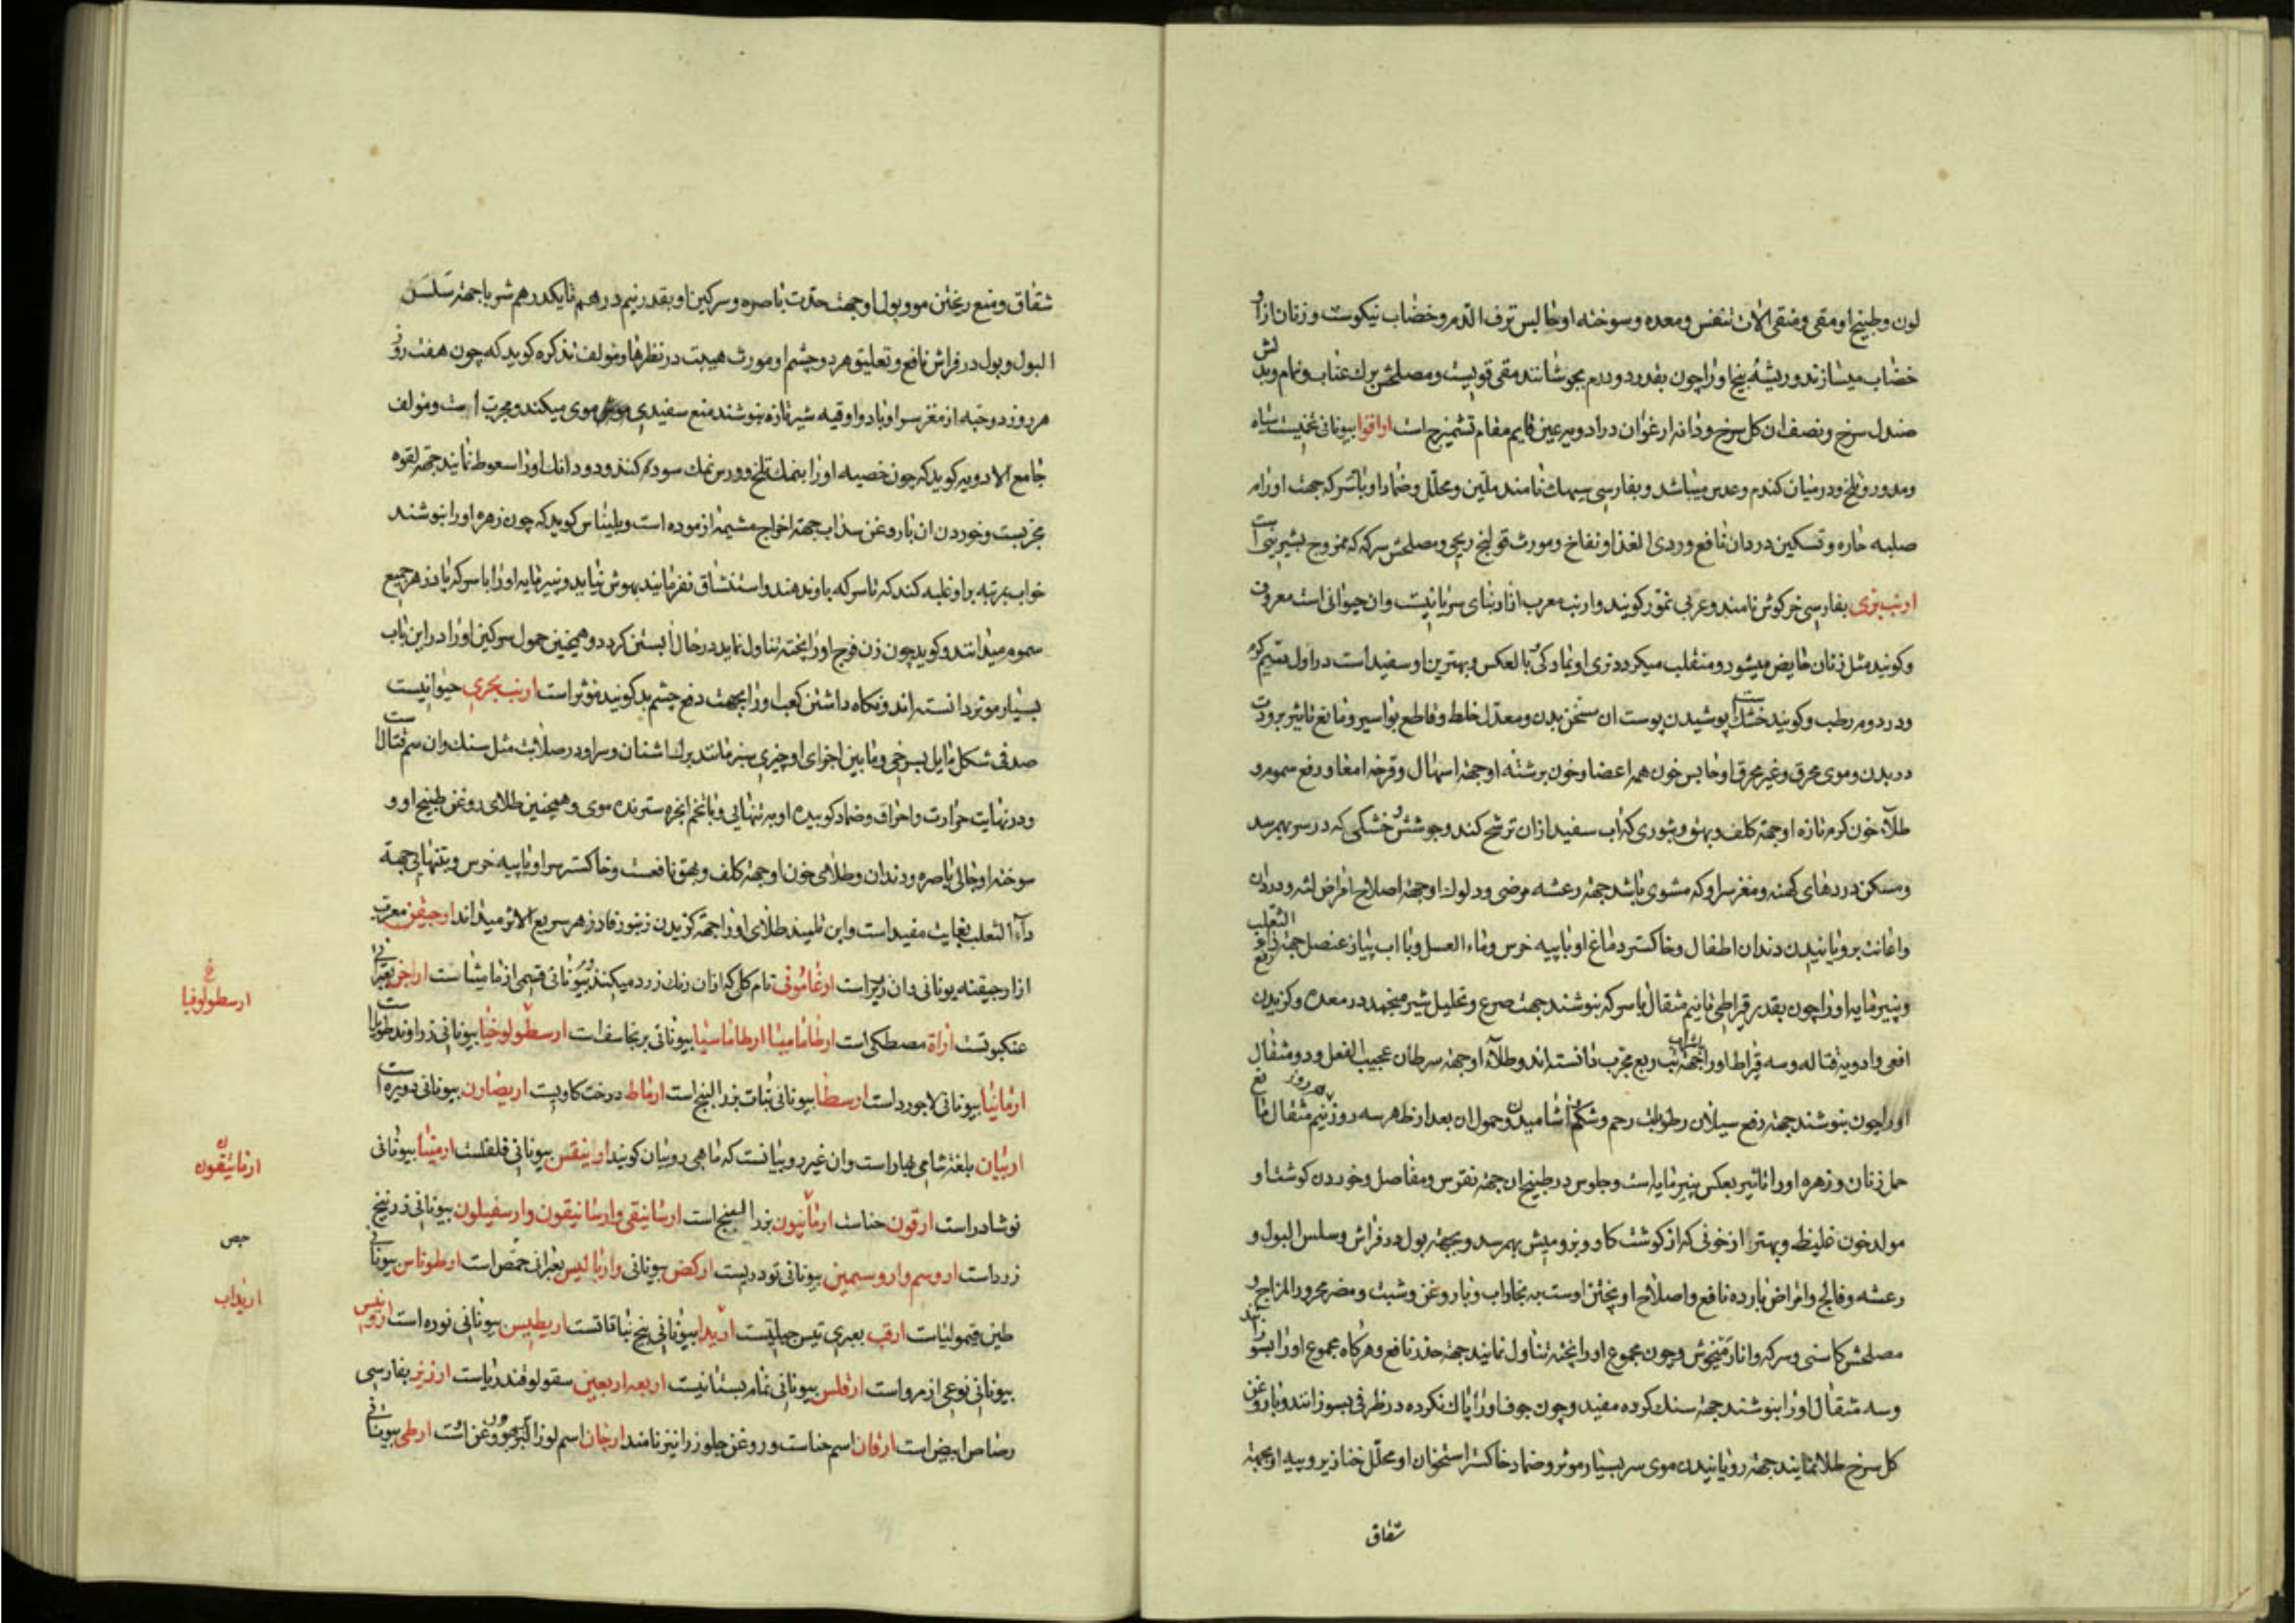 لون و طبیخ او مقی و منقی الات تنفس و معده و سوخته او حابس نزف الدم و خضاب نیکوست و زنان ازو
خضاب میسازند و ریشهٔ بیخ او را چون بقدر دو درم بجوشانند مقی قویست و مصلحش برک عناب و نام و بدلش
صندل سرخ و نصف ان کل سرخ و دانه ارغوان در ادویه عین قایم مقام تشمیزج است اراقوا بیونانی تخمیست سیاه
و مدور و تلخ و در میان کندم و عدس میباشد و بفارسی سیهک نامند ملین و محلل و ضماد او با سرکه جهت اورام
صلبه حاره و تسکین درد ان نافع و ردی الغذا و نفاخ و مورث قولنج ریحی و مصلحش سرکه که ممزوج بشیرینی است
ارنب بری بفارسی خرکوش نامند و عربی نمور کویند و ارنب معرب از ارنبای سریانیست و ان حیوانی است معروف
و کویند مثل زنان حایض میشود و منقلب میکردد نری او بمادکی و بالعکس و بهترین او سفید است در اول سیم کرم
و در دوم رطب و کویند خشک است پوشیدن پوست ان مسخن بدن و معدل خلط و قاطع بواسیر و مانع تاثیر برودت
در بدن و موی محرق و غیر محرق او حابس خون همه اعضا و خون برشته او جهته اسهال و قرحه امعا و رفع سموم و
طلاء خون کرم تازه او جهته کلف و بهق و بثوری که اب سفید ازان ترشح کند و جوشش و خشکی که در سر بهم رسد
و مسکن دردهای کهنه و مغز سر او که مشوی باشد جهته رعشه مرضی و دلوک او جهته اصلاح امراض لثه و درد ان
و اعانت برویانیدن دندان اطفال و خاکستر دماغ او با پیه خرس و ماء العسل و با اب پیاز عنصل جهته داء الثعلب
و پنیر مایه او را چون بقدر قیراطی تا نیم مثقال با سرکه بنوشند جهت صرع و تحلیل شیر منجمد در معده و کزیدن
افعی و ادویه قتاله و سه قیراط او را با شراب جهته تب ربع مجرب دانسته اند و طلاء او جهته سرطان عجیب الفعل و دو مثقال
او را چون بنوشند جهته رفع سیلان رطوبات رحم و شکم و اشامیدن و حمول ان بعد از طهر سه روز نیم مثقال مانع
حمل زنان و زهره او را تاثیر بعکس پنیر مایه است و جلوس در طبیخ ان جهته نقرس و مفاصل و خوردن کوشت او
مولد خون غلیظ و بهتر از خونی که از کوشت کاو و بز و میش بهم رسد و بجهته بول در فراش و سلس البول و
رعشه و فالج و امراض بارده نافع و اصلاح او پختن اوست به بخار اب و با روغن و شبت و مضر محرور المزاج و
مصلحش کاسنی و سرکه و انار میخوش و چون مجموع او را پخته تناول نمایند جهته خدر نافع و هرکاه مجموع او را بسوزانند
و سه مثقال او را بنوشند جهته سنک کرده مفید و چون جوف او را پاک نکرده در ظرفی بسوزانند و با روغن
کل سرخ طلا نمایند جهته رویانیدن موی سر بسیار موثر و ضماد خاکستر استخوان او محلل خنازیر و پیه او بجهته
شقاق
شقاق و منع ریختن مو و بول او جهت حدت باصره و سرکین او بقدر نیم درهم تا یکدرهم شربا جهته سلس
البول و بول در فراش نافع و تعلیق هر دو چشم او مورث هیبت در نظرها و مولف تذکره کوید که چون هفت روز
هر روز دو حبه از مغز سر او با دو اوقیه شیر تازه بنوشند منع سفیدی موی میکند و مجرب است و مولف
جامع الادویه کوید که چون خصیه او را بنمک تلخ و ورس نمک سود کنند و دو دانک او را سعوط نمایند جهته لقوه
مجربست و خوردن ان با روغن سداب جهته اخراج مشیمه ازموده است و بلیناس کوید که چون زهره او را بنوشند
خواب بمرتبه بر او غلبه کند که تا سرکه باو ندهند و استنشاق نفرمایند بهوش نیاید و پنیر مایه او را با سرکه پادزهر جمیع
سموم میدانند و کوید چون زن فرج او را پخته تناول نماید در حال ابستن کردد و همچنین حمول سرکین او را در این باب
بسیار موثر دانسته اند و نکاه داشتن کعب او را بجهت دفع چشم بد کویند موثر است ارنب بحری حیوانیست
صدفی شکل مایل بسرخی و مابین اجزای او چیزی سبز مانند برک اشنان و سر او در صلابت مثل سنک و ان سم قتال است
و در نهایت حرارت و احراق و ضماد کوبیده او به تنهایی و با تخم انجره سترنده موی و همچنین طلای روغن طبیخ او و
سوخته او جالی باصره و دندان و طلای خون او جهته کلف و بهق نافعست و خاکستر سر او با پیه خرس و بتنهایی جهته
داء الثعلب بغایت مفید است و ابن تلمیذ طلای او را جهته کزیدن زنبور فادزهر سریع الاثر میداند ارجیقن معرب
از ارجیقنه یونانی و ان زیر است ارغامونی نام کلی که ازان رنک زرد میکنند و بیونانی قسمی از مامیثا ست ارجز بعبرانی
عنکبوتست اراة مصطکی است ارطاماسیا ارطاماسیا بیونانی برنجاسف است ارسطولوخیا بیونانی زراوند طویل است
ارمانیا بیونانی لاجورد است ارسطا بیونانی نبات بزر البنج است ارماط درخت کاویست اریصارن بیونانی دویره است
اربیان بلغته شامی بهار است و ان غیر روبیانست که ماهی روبیان کویند ارینقس بیونانی قلقلست ارمینا بیونانی
نوشادر است ارقون حناست ارمانیون بزر البنج است ارسانیقی و ارسانیقون و ارسفیلون بیونانی زرنیخ
زرد است اروسم و اروسیمین بیونانی تودریست ارکض بیونانی و ارباییس بعبرانی حمص است ارطوناس بیونانی
طین قیمولیاست ارقب بعبری تیس جبلیست اریدا بیونانی بنج نباقاتست اریطیس بیونانی نوره است ارونیس
بیونانی نوعی از مرو است ارفلس بیونانی نمام بستانیست اربعه اربعین سقولوفندریاست ارزیز بفارسی
رصاص ابیض است ارقان اسم حناست و روغن جلوز را نیز نامند ارجان اسم لوز البربر و روغن است ارطی بیونانی
ارسطولوفیا
ارمانیقون
حمص
اریداب